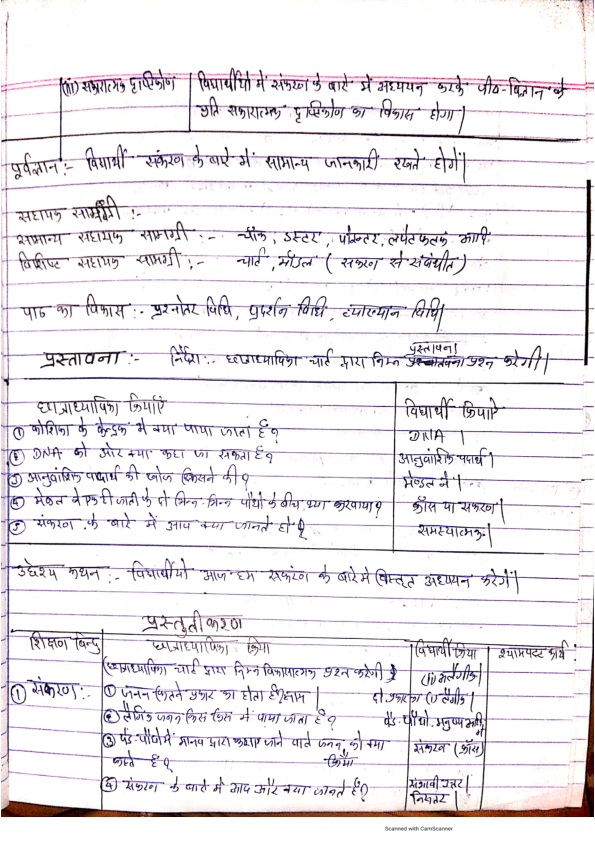 (iii) सकारात्मक दृष्टिकोण | विद्यार्थियों में संकरण के बारे में अध्ययन करके जीव-विज्ञान के
प्रति सकारात्मक दृष्टिकोण का विकास होगा|
पूर्वज्ञान:- विद्यार्थी संकरण के बारे में सामान्य जानकारी रखते होगें|
सहायक सामग्री :-
सामान्य सहायक सामग्री :- चॉक, डस्टर, पॉइन्टर, लपेटफलक आदि
विशिष्ट सहायक सामग्री :- चार्ट, मॉडल ( संकरण से संबंधीत )
पाठ का विकास :- प्रश्नोतर विधि, प्रदर्शन विधि, व्याख्यान विधि|
प्रस्तावना
प्रस्तावना :- निर्देश:- छात्राध्यापिका चार्ट द्वारा निम्न प्रश्न करेगी|
छात्राध्यापिका क्रियाएँ | विद्यार्थी क्रियाएं
① कोशिका के केन्द्रक में क्या पाया जाता है? DNA |
② DNA को और क्या कहा जा सकता है? आनुवांशिक पदार्थ |
③ आनुवांशिक पदार्थ की खोज किसने की? मेण्डल ने |
④ मेण्डल ने एक ही जाती के दो भिन्न भिन्न पौधों के बीच क्या करवाया? क्रॉस या संकरण|
⑤ संकरण के बारे में आप क्या जानते हो? समस्यात्मक|
उद्देश्य कथन :- विद्यार्थीयो आज हम संकरण के बारे में विस्तृत अध्ययन करेगें|
प्रस्तुतीकरण
शिक्षण बिन्दु | छात्राध्यापिका क्रिया | विद्यार्थी क्रिया | श्यामपट्ट कार्य
(छात्राध्यापिका चार्ट द्वारा निम्न विकासात्मक प्रश्न करेगी) (ii) अलैंगीक|
① संकरण:- ① जनन कितने प्रकार का होता है? दो प्रकार का (i) लैंगीक|
② लैंगिक जनन किस किस में पाया जाता है? पेड़-पौधों, मनुष्य आदि में
③ पेड़ पौधों में मानव द्वारा कराए जाने वाले जनन को क्या संकरण (क्रॉस)
कहते है? क्रिया
④ संकरण के बारे में आप और क्या जानते है? संभावी उत्तर|
निरूत्तर|
Scanned with CamScanner